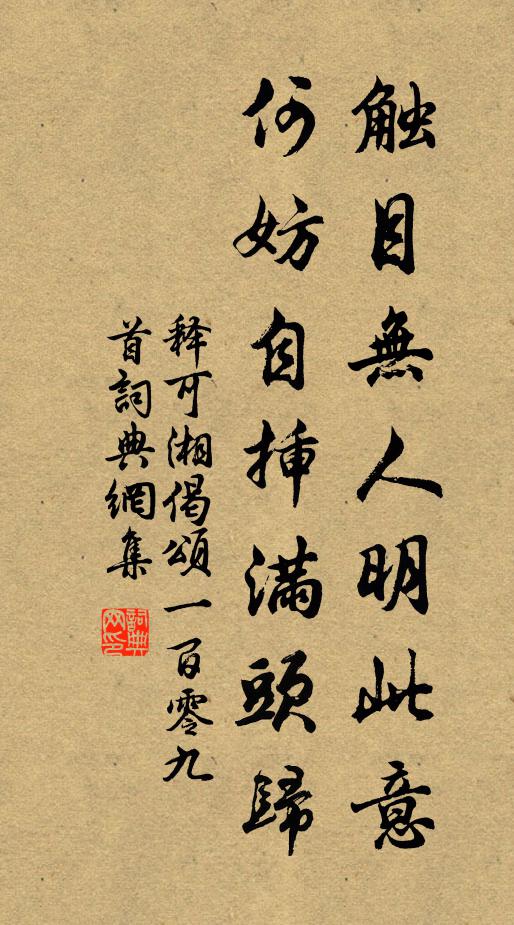 触目無人明此意
何妨自插滿頭歸
释可湘偈頌一百零九
首詞典網集
詞典网印